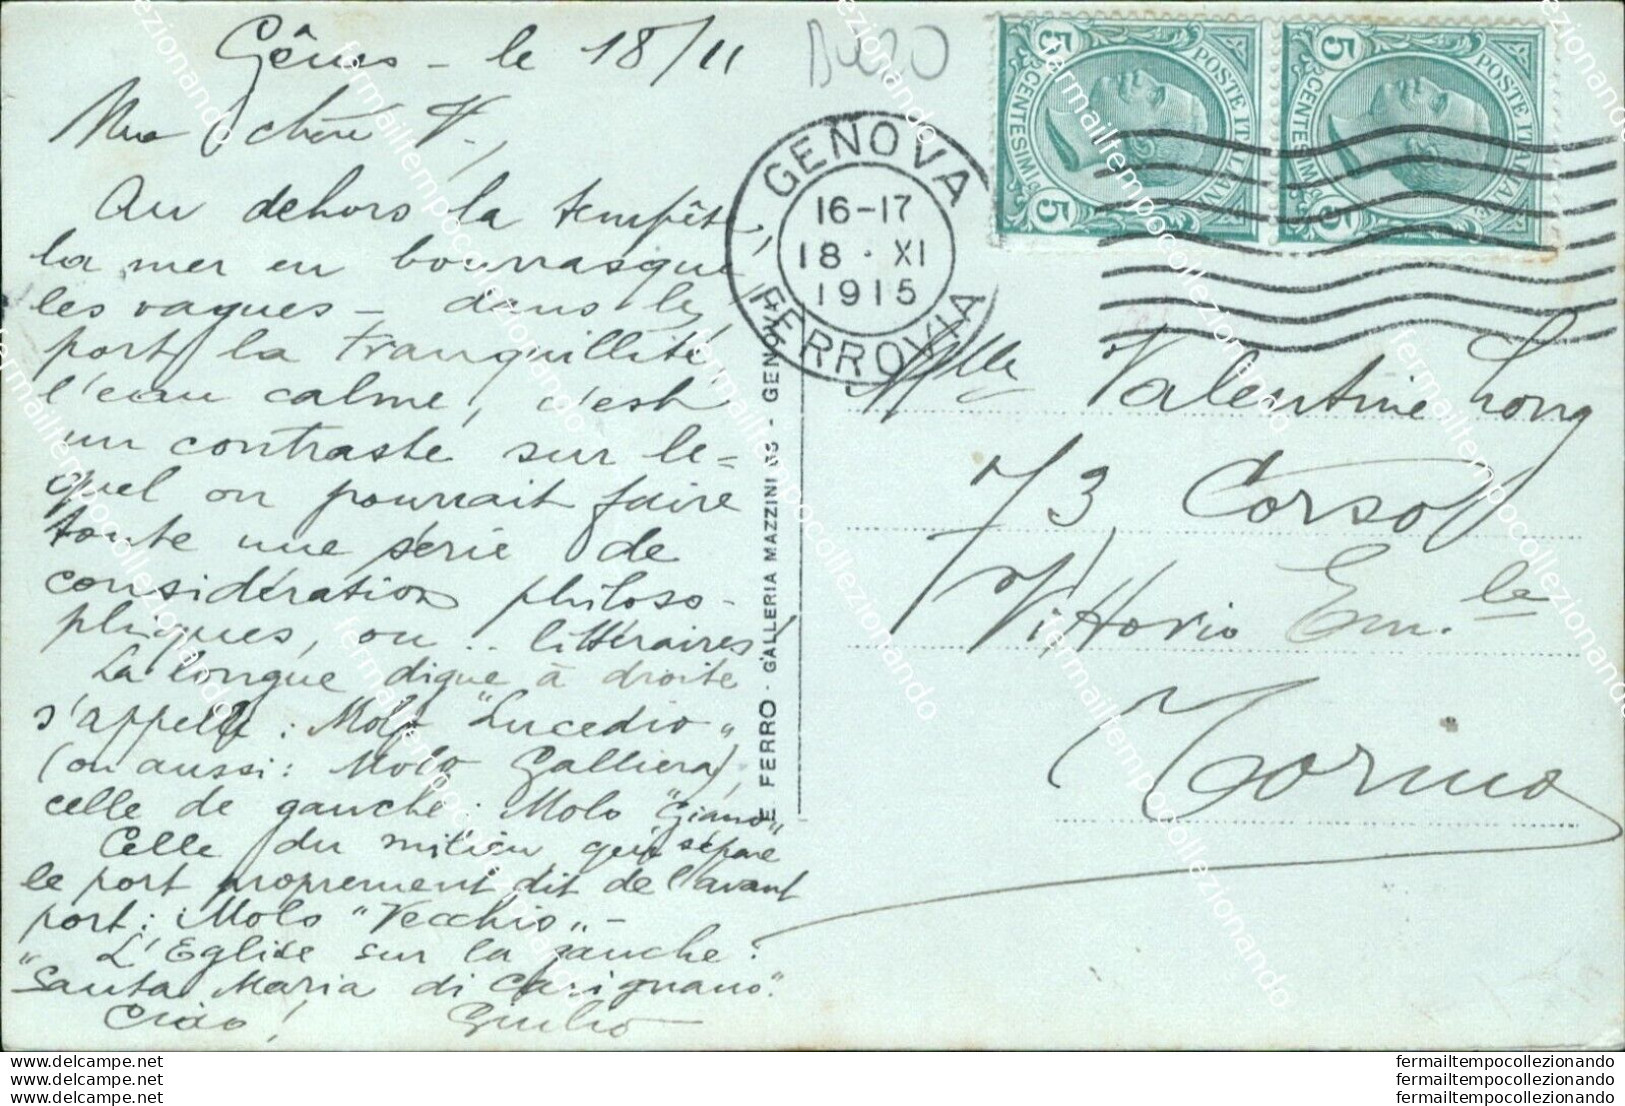 Gênes - le 18/11
Ma chère V.,
Au dehors la tempête,
la mer en bourrasque
les vagues - dans le
port la tranquillité,
l'eau calme, c'est
un contraste sur le=
quel on pourrait faire
toute une série de
considération philoso-
phiques, ou .. littéraires!
La longue digue à droite
s'appelle: Molo "Lucedio"
(ou aussi: Molo Galliera),
celle de gauche: Molo "Giano"
Celle du milieu qui sépare
le port proprement dit de l'avant
port: Molo "Vecchio" -
L'Eglise sur la gauche:
"Santa Maria di Carignano".
Ciao! Giulio
E FERRO - GALLERIA MAZZINI - GENOVA
GENOVA
16-17
18 · XI
1915
FERROVIA
POSTE ITALIANE
CENTESIMI
5 5
POSTE ITALIANE
CENTESIMI
5 5
Mlle Valentine Long
73, Corso
Vittorio Em.le
Torino
fermailtempocollezionando
delcampe.net
delcampe.net
delcampe.net
fermailtempocollezionando
fermailtempocollezionando
fermailtempocollezionando